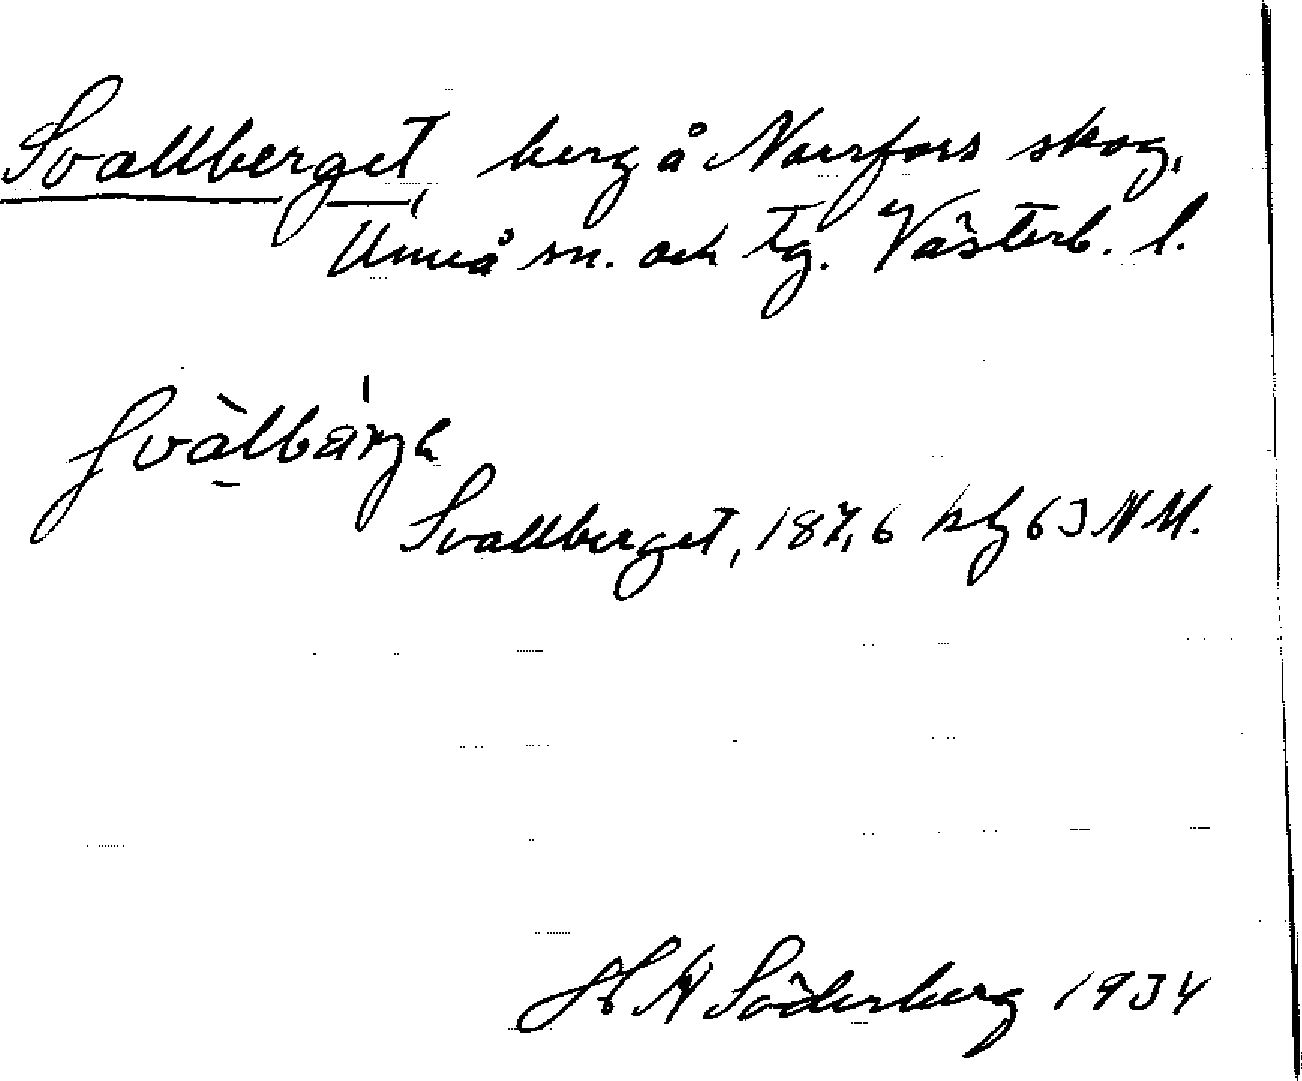 Svallberget, berg å Norrfors skog,
Umeå sn. och tg. Västerb. l.
Svallberget, 187,6 hfg 63 NM.
H W Söderberg 1934